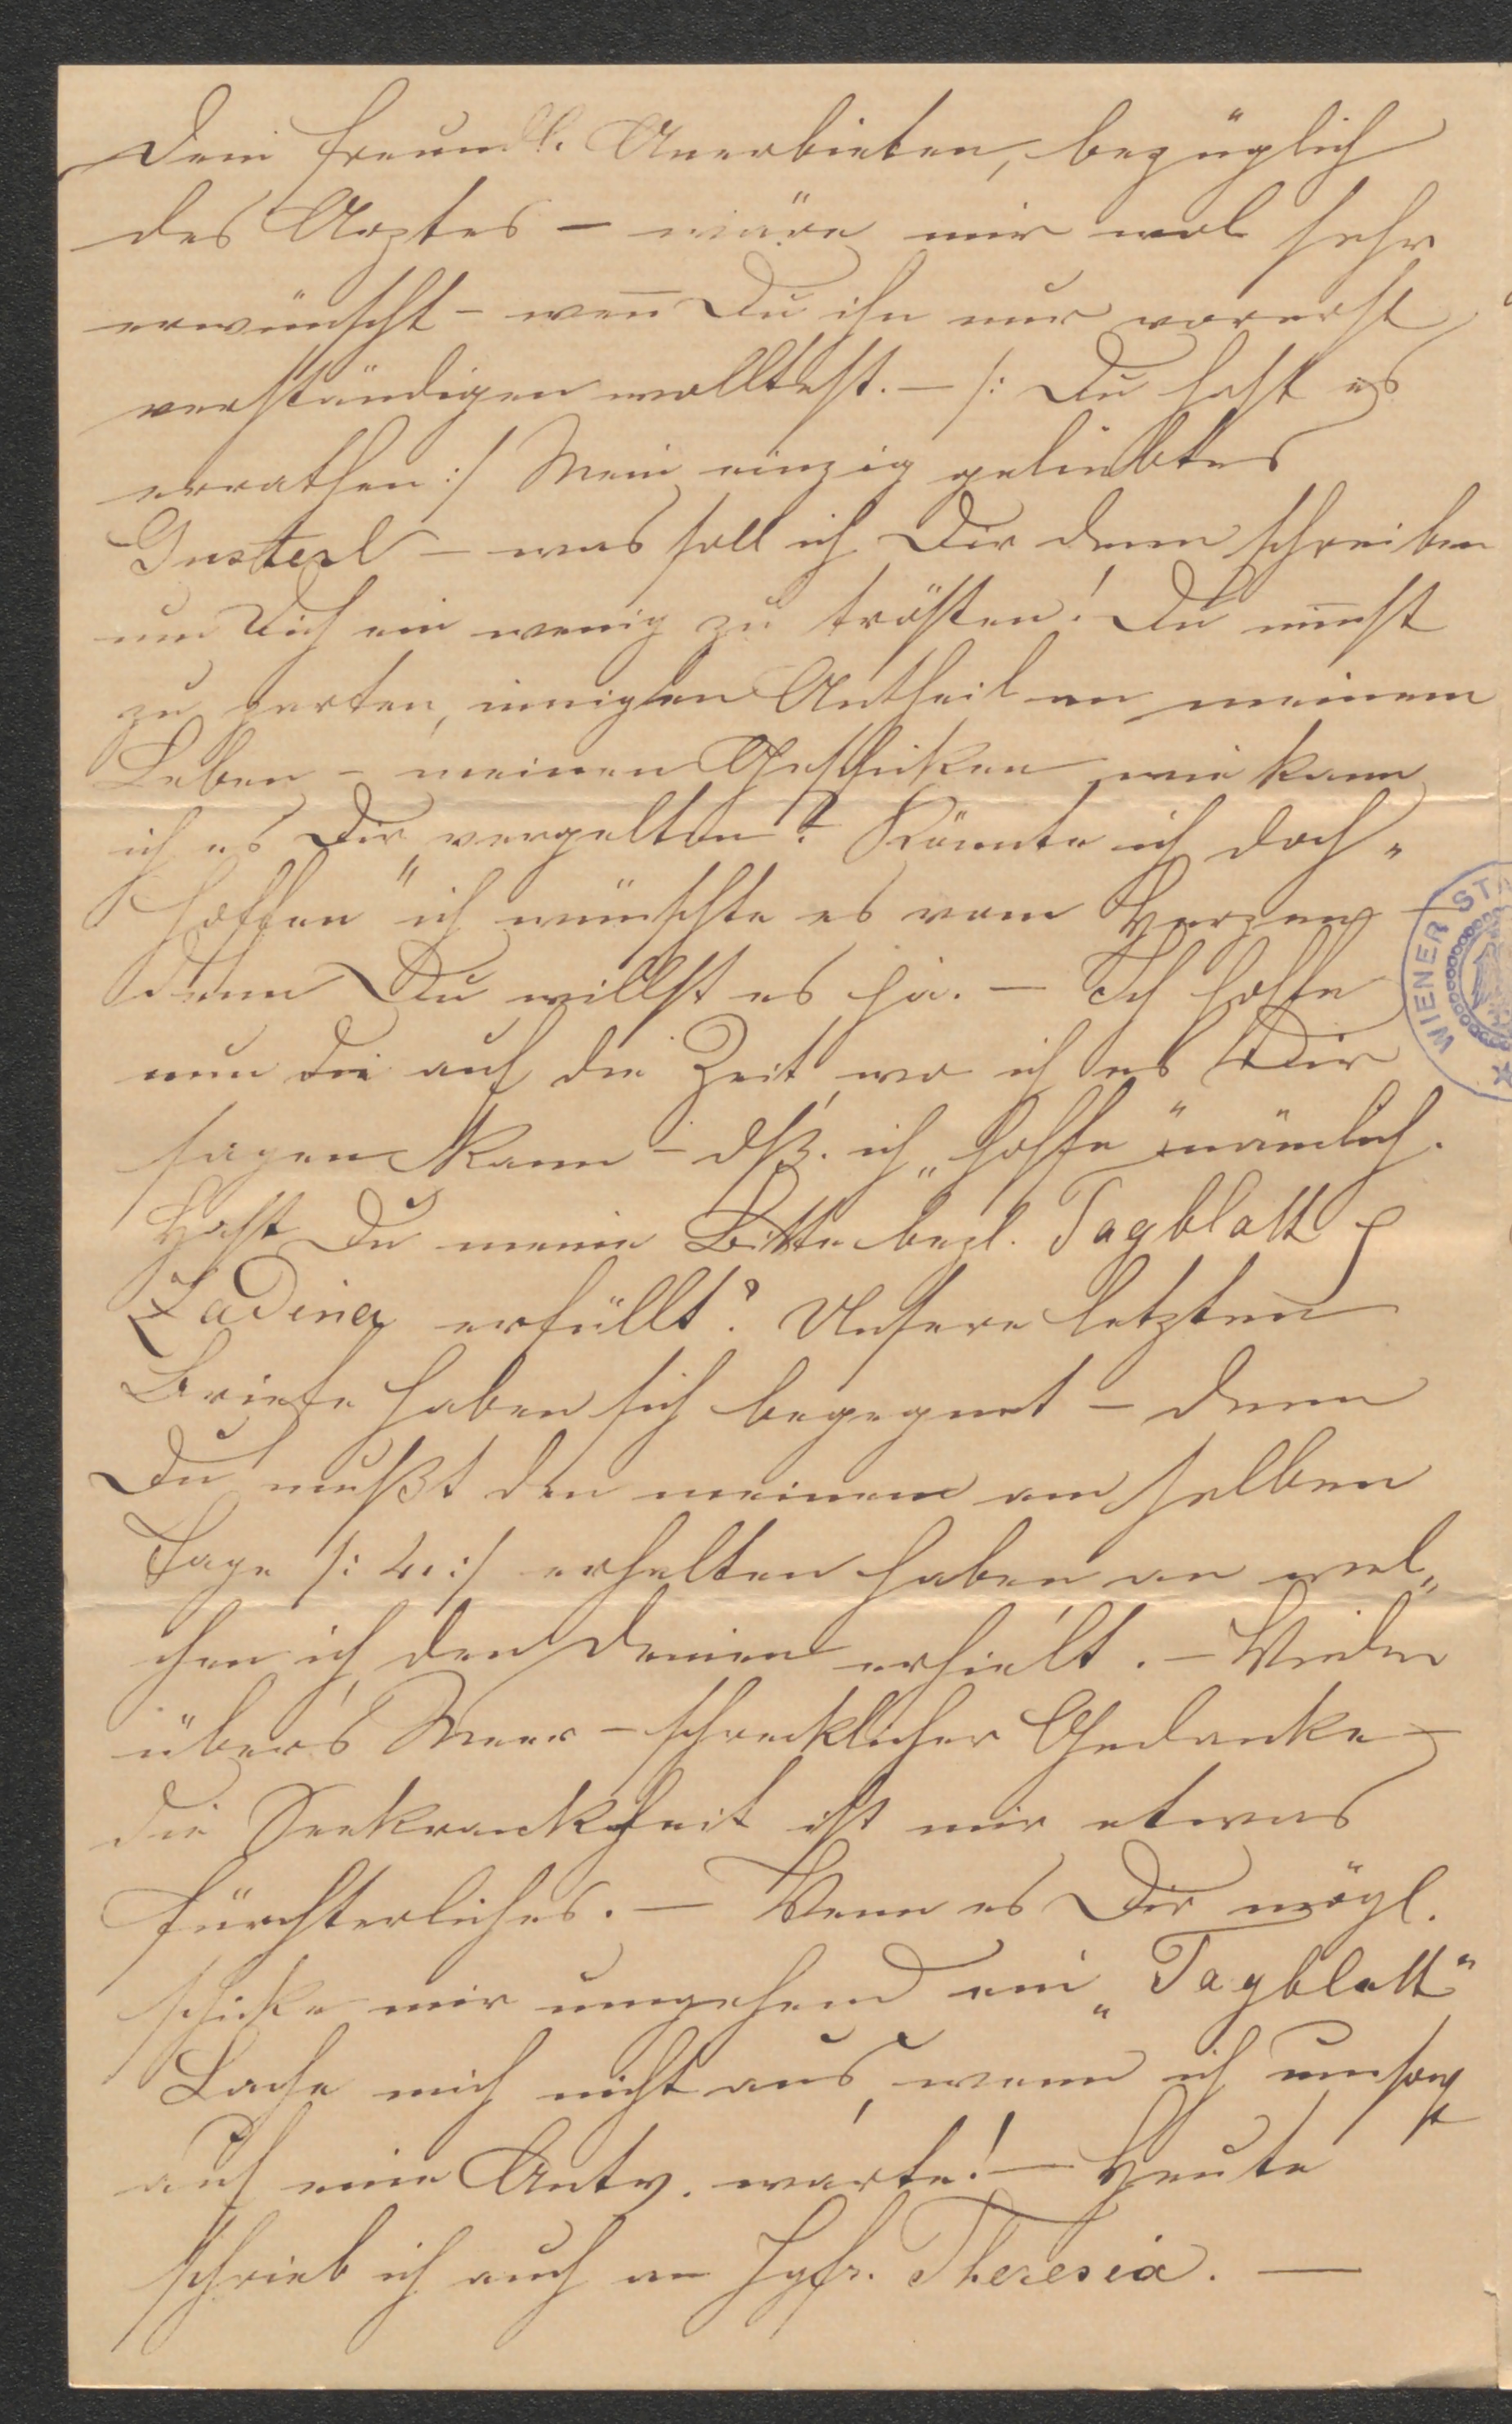 Dein freundl. Anerbieten, bezüglich
des Arztes – wäre mir wol sehr
erwünscht – weñ Du ihn nur vorerst
verständigen wolltest. – /: Du hast es
errathen :/ Mein einzig geliebtes
Gusterl – was soll ich Dir denn schreiben
um Dich ein wenig zu trösten! Du nim̅st
zu zarten, innigen Antheil an meinem
Leben – meinen Geschicken, wie kann
ich es Dir vergelten? Könnte ich doch „
hoffen" ich wünschte es vom Herzen –
denn Du willst es ja. – Ich hoffe
nun die auf die Zeit, wo ich es Dir
sagen kann – dß. ich „hoffe" nämlich.
Hast Du meine Bitte bezl. Tagblatt
Zadina erfüllt? Unsere letzten
Briefe haben sich begegnet – denn
Du mußt den meinen am selben
Tage /: 4. :/ erhalten haben an wel„
chen ich den Deinen erhielt. – Wieder
über's Meer – schrecklicher Gedanke –
die Seekrankheit ist mir etwas
fürchterliches. – Wenn es Dir mögl.
schicke mir umgehend ein „Tagblatt"
Lache mich nicht aus, wenn ich umsonst
auf eine Antw. warte! – Heute
schrieb ich auch an Theresia. —
WIENER STA